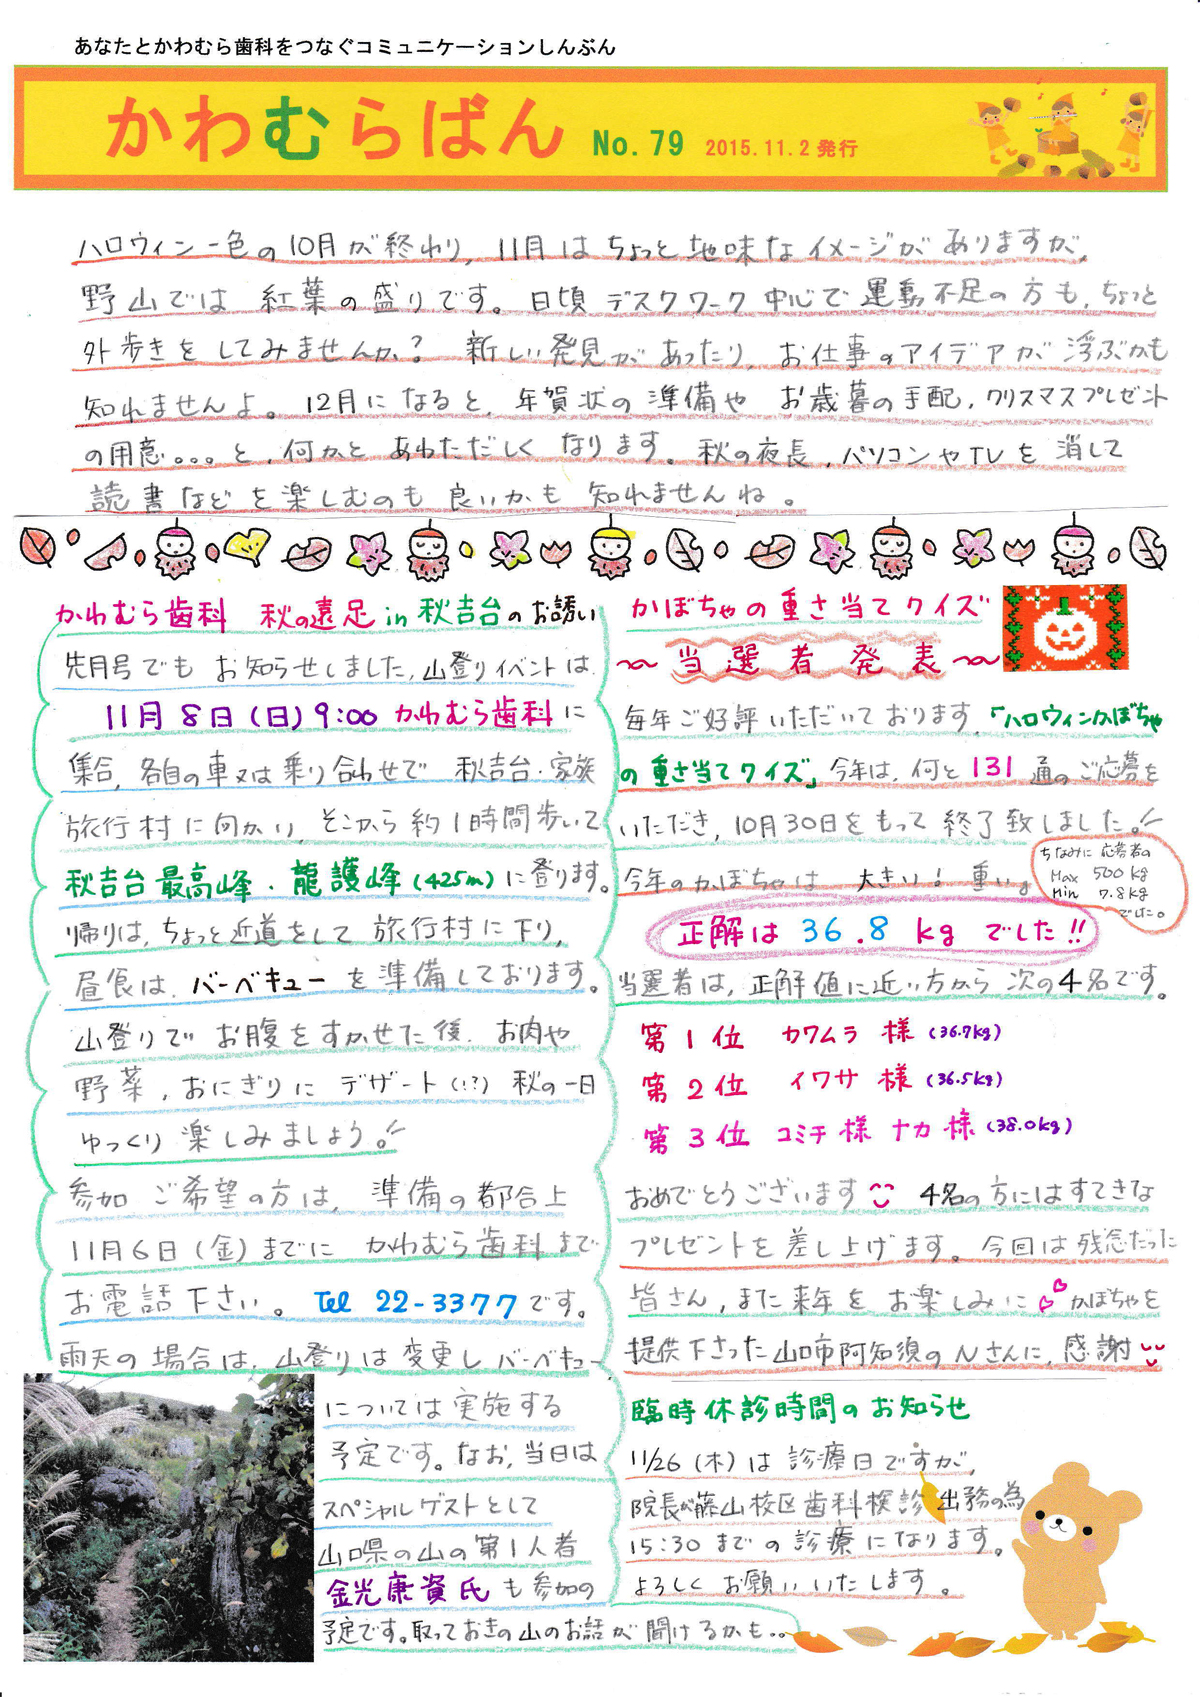 あなたとかわむら歯科をつなぐコミュニケーションしんぶん
かわむらばん No. 79 2015.11.2発行
ハロウィン一色の10月が終わり, 11月はちょっと地味なイメージがありますが,
野山では 紅葉の盛りです。日頃 デスクワーク中心で運動不足の方も, ちょっと
外歩きをしてみませんか? 新しい発見があったり, お仕事のアイデアが浮ぶかも
知れませんよ。12月になると, 年賀状の準備や お歳暮の手配, クリスマスプレゼント
の用意。。。と, 何かと あわただしく なります。秋の夜長, パソコンやTVを消して
読書などを楽しむのも良いかも知れませんね。
かわむら歯科 秋の遠足 in 秋吉台のお誘い
先月号でも お知らせしました, 山登りイベントは
11月8日(日)9:00 かわむら歯科に
集合, 各自の車又は乗り合わせで 秋吉台・家族
旅行村に向かい, そこから約1時間歩いて
秋吉台最高峰・龍護峰(425m)に登ります。
帰りは, ちょっと近道をして 旅行村に下り,
昼食は バーベキューを準備しております。
山登りで お腹をすかせた後, お肉や
野菜, おにぎりに デザート(!?) 秋の一日
ゆっくり 楽しみましょう。
参加 ご希望の方は, 準備の都合上
11月6日(金)までに かわむら歯科まで
お電話下さい。 Tel 22-3377です。
雨天の場合は, 山登りは変更しバーベキュー
については実施する
予定です。なお, 当日は
スペシャルゲストとして
山口県の山の第1人者
金光康資氏も参加の
予定です。取っておきの山のお話が聞けるかも..
かぼちゃの重さ当てクイズ
～当選者発表～
毎年ご好評いただいております,「ハロウィンかぼちゃ
の重さ当てクイズ」今年は, 何と131通のご応募を
いただき, 10月30日をもって終了致しました。
今年のかぼちゃは 大きい! 重い。
ちなみに 応募者の
Max 500kg
Min 7.8kg
でした。
正解は 36.8 kg でした!!
当選者は, 正解値に近い方から 次の4名です。
第1位 カワムラ 様 (36.7kg)
第2位 イワサ 様 (36.5kg)
第3位 コミチ様 ナカ様 (38.0kg)
おめでとうございます 4名の方にはすてきな
プレゼントを差し上げます。今回は残念だった
皆さん, また来年を お楽しみに かぼちゃを
提供下さった山口市阿知須のNさんに, 感謝
臨時休診時間のお知らせ
11/26(木)は診療日ですが,
院長が藤山校区歯科検診出務の為
15:30までの診療になります。
よろしくお願いいたします。